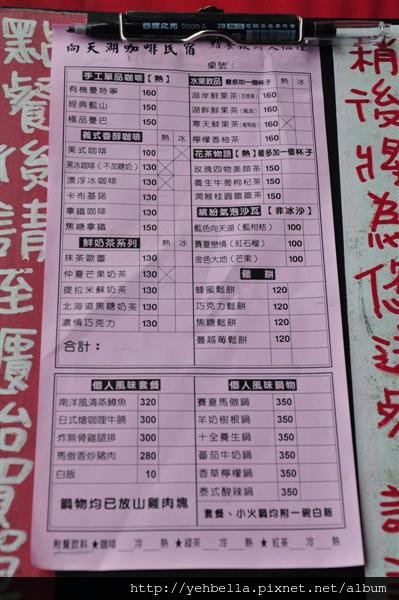 向天湖咖啡民宿
桌號:
手工單品咖啡【熱】
有機曼特寧 160
經典藍山 150
極品曼巴 150
義式香醇咖啡 熱 冰
美式咖啡 100
黑冰咖啡(不加糖奶) 130
漂浮冰咖啡 130
卡布基諾 130
拿鐵咖啡 130
焦糖拿鐵 150
鮮奶茶系列 熱 冰
抹茶歐蕾 130
仲夏芒果奶茶 130
提拉米蘇奶茶 130
北海道焦糖奶茶 130
濃情巧克力 130
合計:
水果飲品 最多加一個杯子 熱 冰
湖岸鮮果茶(百香果) 160
湖畔鮮果茶(鳳梨) 160
寒天鮮果茶(葡萄柚) 160
檸檬香柚茶 160
花茶物語【熱】最多加一個杯子
玫瑰四物美顏茶 150
養生牛蒡枸杞茶 150
潤喉桂圓薑薑茶 150
繽紛氣泡沙瓦【非冰沙】
藍色向天湖(藍柑桔) 100
賽夏戀情(紅石榴) 100
金色大地(芒果) 100
鬆餅
蜂蜜鬆餅 120
巧克力鬆餅 120
焦糖鬆餅 120
蔓越莓鬆餅 120
個人風味套餐
南洋風清蒸鱒魚 320
日式燴咖哩牛腩 300
炸無骨雞腿排 300
馬傲香炒豬肉 280
白飯 10
鍋物均已放山雞肉塊
個人風味鍋物
賽夏馬傲鍋 350
羊奶樹根鍋 350
十全養生鍋 350
蕃茄牛奶鍋 350
香草檸檬鍋 350
泰式酸辣鍋 350
套餐、小火鍋均附一碗白飯
附餐飲料 ★咖啡__冷__熱 ★綠茶__冷__熱 ★紅茶__冷__熱
點餐後請至櫃台
稍後將為您送
http://yehbella.pixnet.net/album